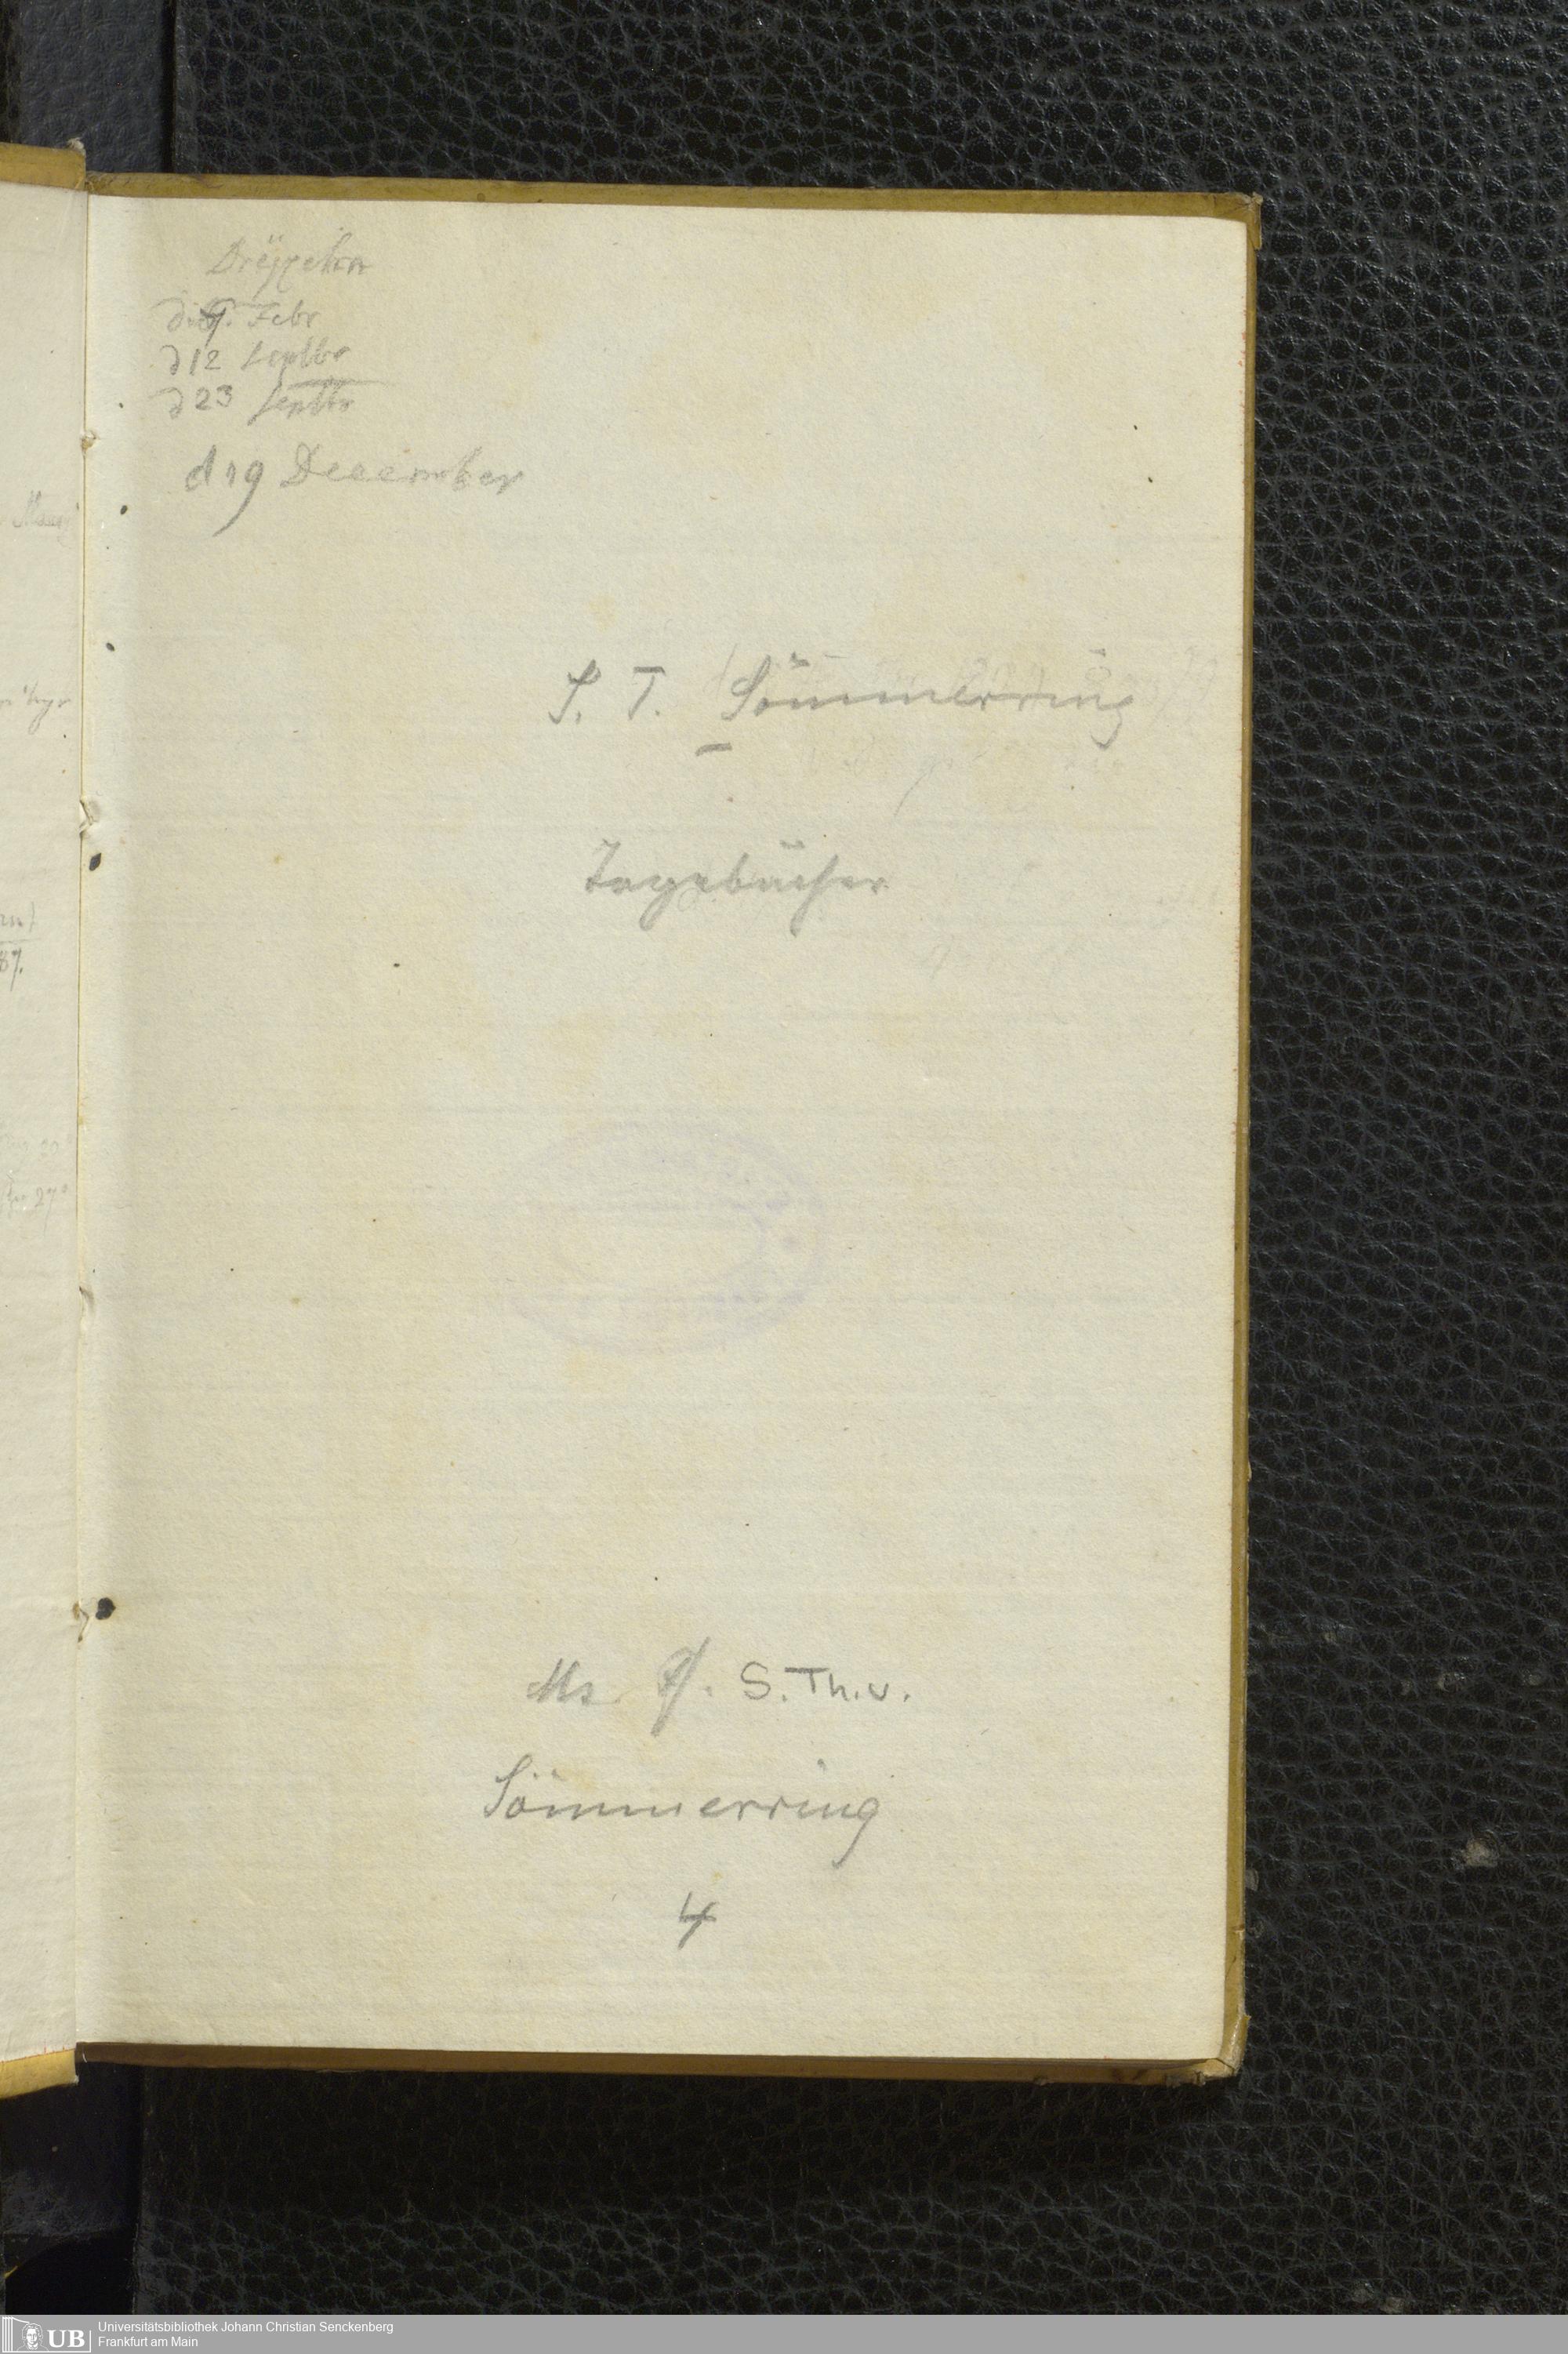 Dreyzehn
d 9. Febr
d 12 Septbr
d 23 Septbr
d 19 December
S. T. Sömmerring
Tagebücher
Ms. S. Th. v.
Sömmerring
4
87.
UB
Universitätsbibliothek Johann Christian Senckenberg
Frankfurt am Main